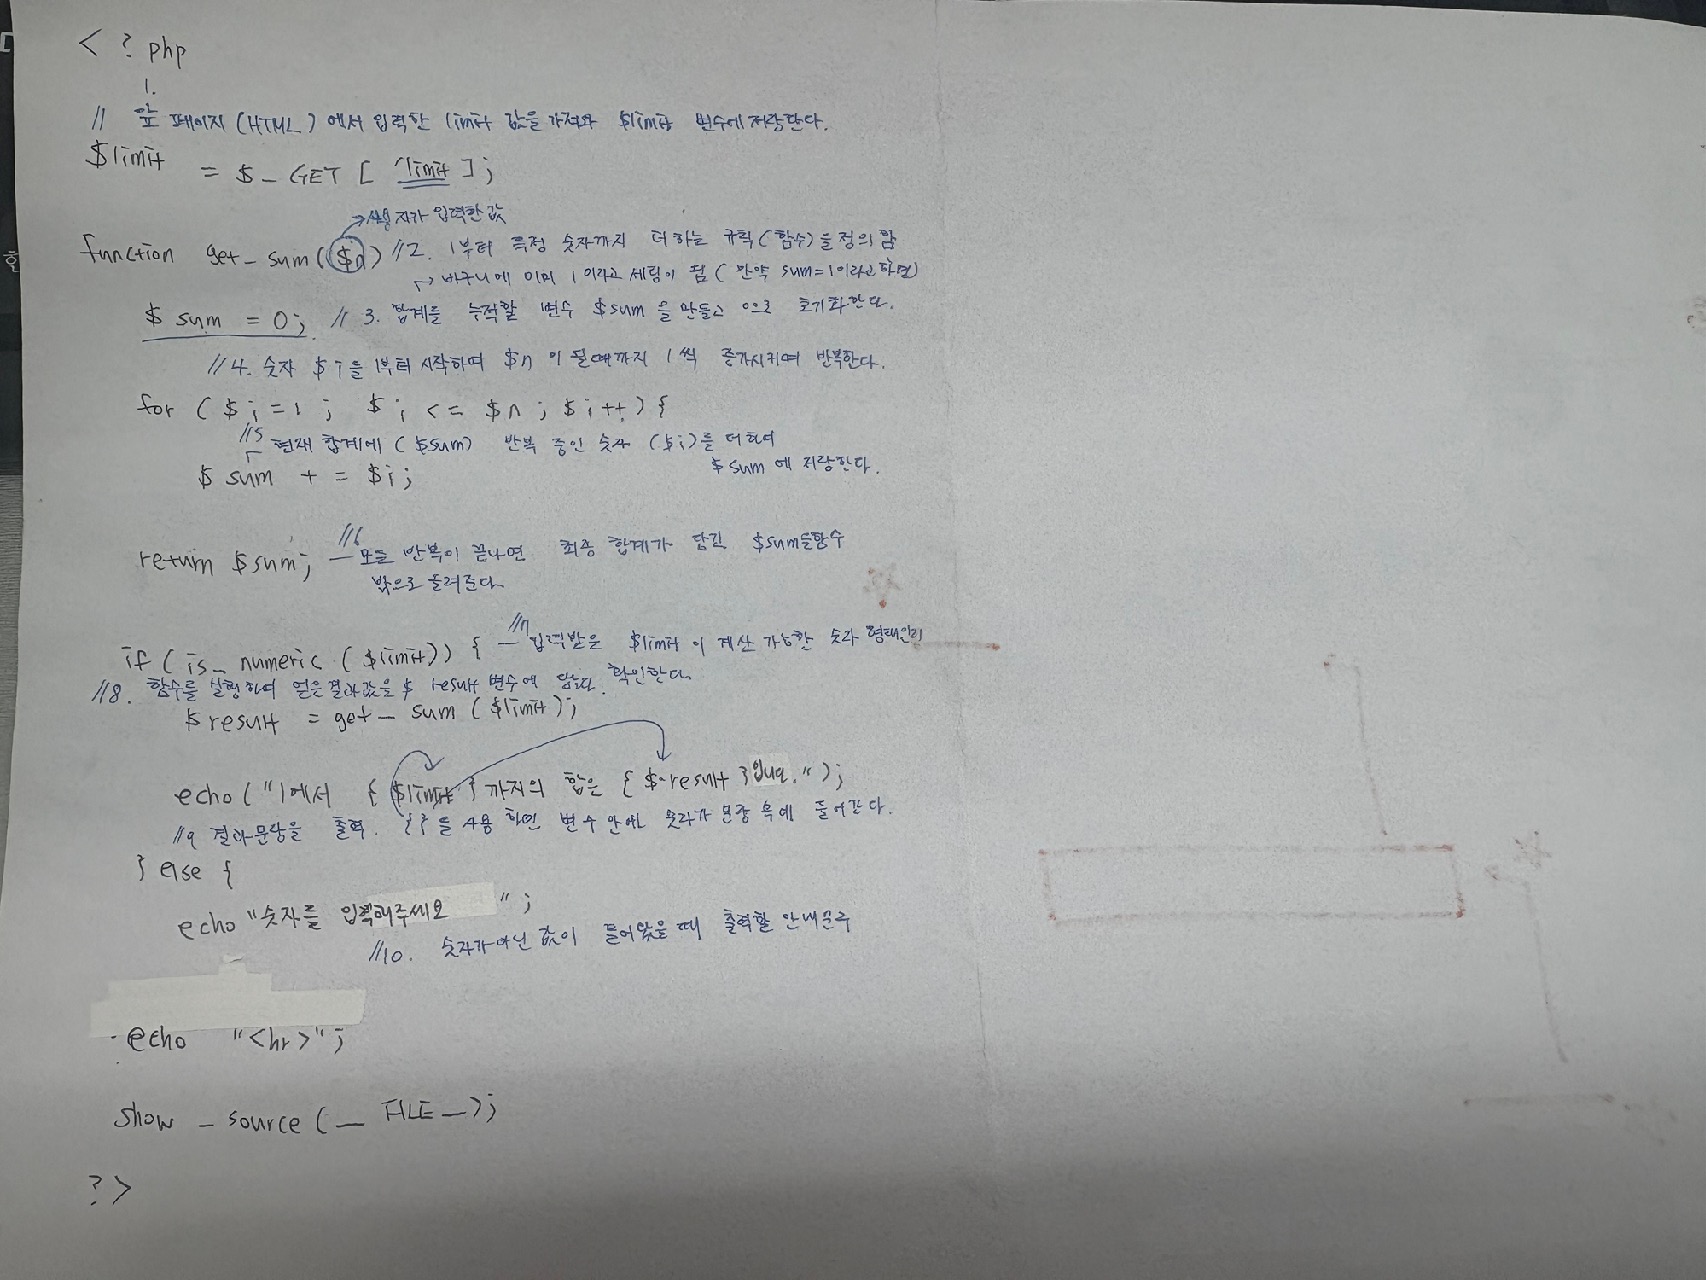 <?php
1.
// 앞 페이지 (HTML) 에서 입력한 limit 값을 가져와 $limit 변수에 저장한다.
$limit = $_GET [ 'limit ];
→사용자가 입력한 값
function get_sum($n) //2. 1부터 특정 숫자까지 더하는 규칙(함수)을 정의함
→ 바구니에 이미 1이라고 세팅이 됨 ( 만약 sum=1이라고 하면)
$ sum = 0; // 3. 합계를 누적할 변수 $sum 을 만들고 0으로 초기화한다.
//4. 숫자 $i을 1부터 시작하여 $n 이 될때까지 1씩 증가시키며 반복한다.
for ( $i=1 ; $i <= $n ; $i++) {
//5 현재 합계에 ($sum) 반복 중인 숫자 ($i)를 더하여
$sum 에 저장한다.
$ sum += $i;
//6
return $sum; — 모든 반복이 끝나면 최종 합계가 담긴 $sum을 함수
밖으로 돌려준다.
//7
if ( is_numeric ( $limit)) { — 입력받은 $limit 이 계산 가능한 숫자 형태인지
확인한다.
//8. 함수를 실행하여 얻은 결과값을 $ result 변수에 담는다.
$result = get_sum ($limit);
echo ("1에서 { $limit } 까지의 합은 { $result }입니다.");
//9 결과문장을 출력. { }를 사용하면 변수 안에 숫자가 문장 속에 들어간다.
} else {
echo "숫자를 입력해주세요 ";
//10. 숫자가 아닌 값이 들어왔을 때 출력할 안내문구
echo "<hr>";
show_source (_ FILE _);
?>